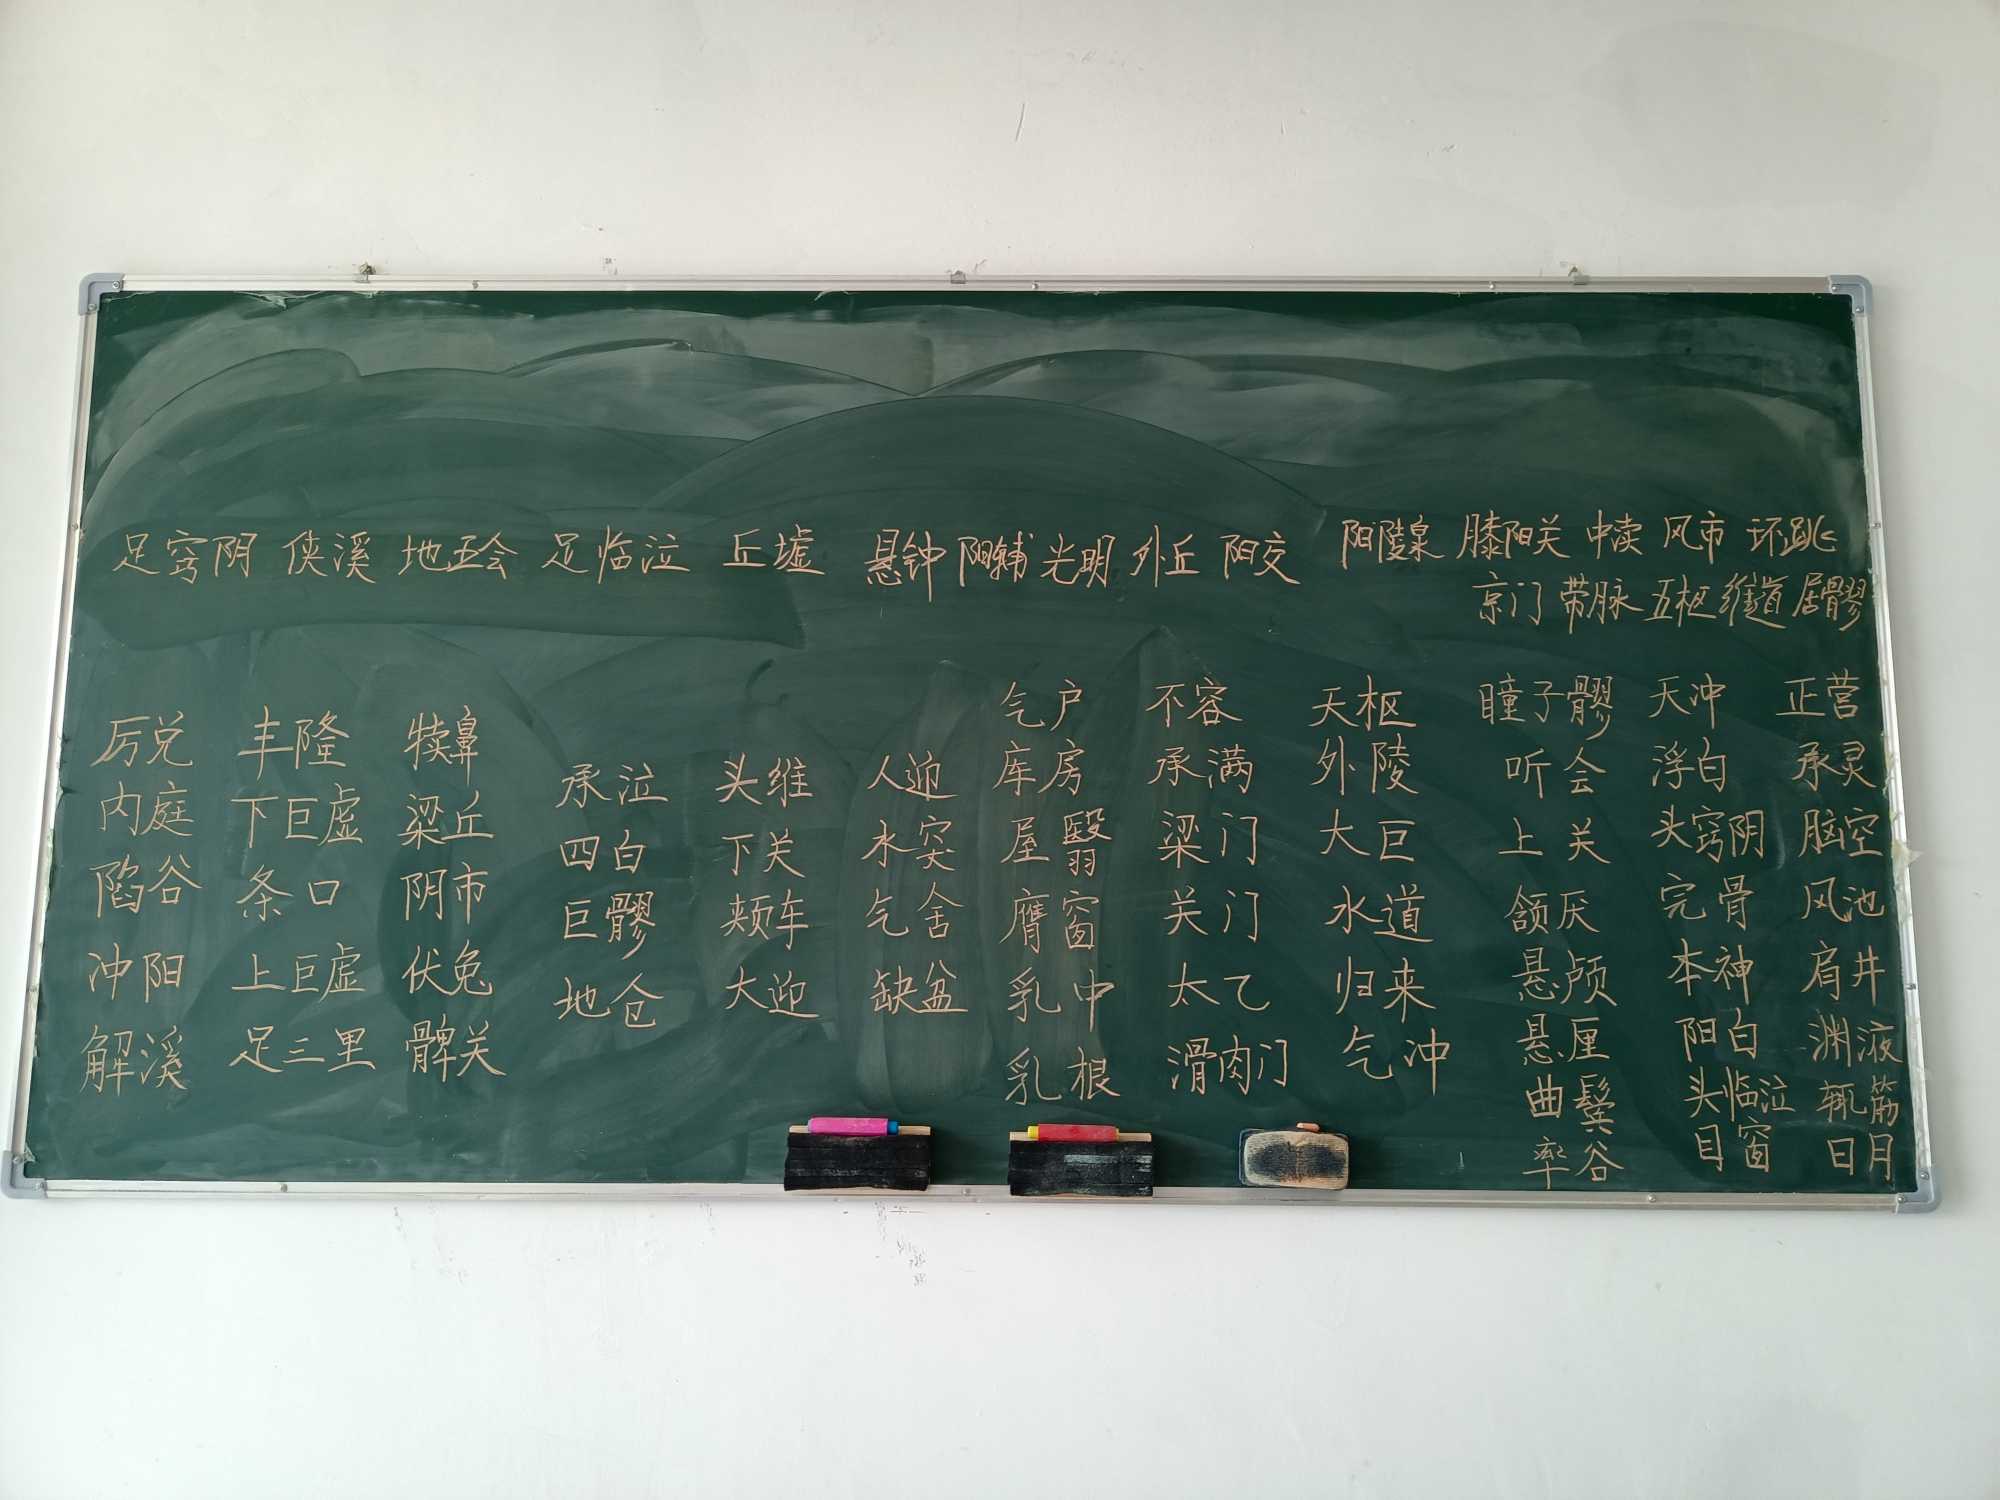 足窍阴 侠溪 地五会 足临泣 丘墟 悬钟 阳辅 光明 外丘 阳交 阳陵泉 膝阳关 中渎 风市 环跳
京门 带脉 五枢 维道 居髎
厉兑
内庭
陷谷
冲阳
解溪
丰隆
下巨虚
条口
上巨虚
足三里
犊鼻
梁丘
阴市
伏兔
髀关
承泣
四白
巨髎
地仓
头维
下关
颊车
大迎
人迎
水突
气舍
缺盆
气户
库房
屋翳
膺窗
乳中
乳根
不容
承满
梁门
关门
太乙
滑肉门
天枢
外陵
大巨
水道
归来
气冲
瞳子髎
听会
上关
颔厌
悬颅
悬厘
曲鬓
率谷
天冲
浮白
头窍阴
完骨
本神
阳白
头临泣
目窗
正营
承灵
脑空
风池
肩井
渊液
辄筋
日月